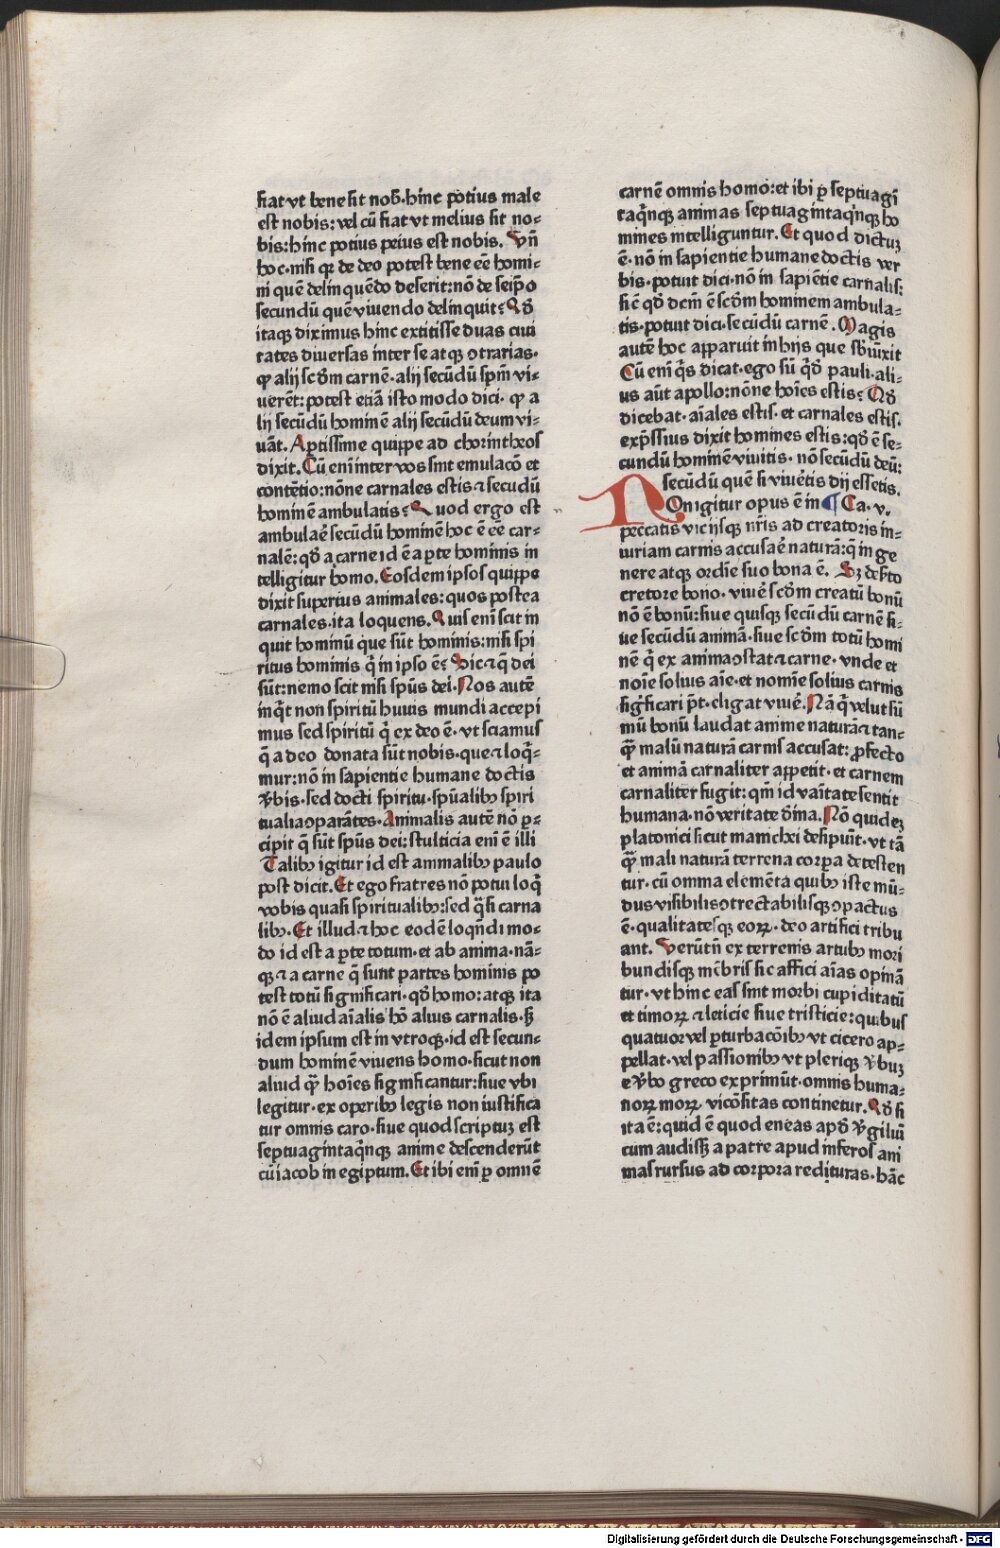 fiat vt bene sit nob̄·hinc potius male
est nobis: vel cū fiat vt melius sit no⸗
bis: hinc potius peius est nobis. Vn̄
hoc·nisi qꝛ de deo potest bene eē homi⸗
ni quē delinquēdo deserit: nō de seip̄o
secundū quē viuendo delinquit? Qd̄
itaqꝫ diximus hinc extitisse duas ciui
tates diuersas inter se atqꝫ ↄtrarias·
qꝙ alij scd̄m carnē·alij secūdū sp̄m vi⸗
uerēt: potest etiā isto modo dici· qꝙ a
lij secūdū hominē alij secūdū deum vi⸗
uāt. Aptissime quippe ad chorintheos
dixit. Cū eni inter vos sint emulacō et
contētio: nōne carnales estis ⁊ secūdū
hominē ambulatis? Quod ergo est
ambulaē secūdū hominē hoc ē eē car⸗
nalē: qd̄ a carne id ē a ꝑte hominis in
telligitur homo. Eosdem ipsos quippe
dixit superius animales: quos postea
carnales·ita loquens. Quis eni scit in
quit hominū que sūt hominis: nisi spi
ritus hominis q̇ in ipso ē? Sic ⁊ q̄ dei
sūt: nemo scit nisi sp̄us dei. Nos autē
inq̇t non spiritū huius mundi accepi
mus sed spiritū q̇ ex deo ē· vt sciamus
q̄ a deo donata sūt nobis·que ⁊ loq̄⸗
mur: nō in sapientie humane doctis
v̄bis·sed docti spiritu·sp̄ualibꝰ spiri
tualia ↄparātes·Animalis autē nō ꝑ⸗
cipit q̄ sūt sp̄us dei: stulticia eni ē illi
Talibꝰ igitur id est animalibꝰ paulo
post dicit. Et ego fratres nō potui loq̇
vobis quasi spiritualibꝰ: sed q̄si carna
libꝰ. Et illud ⁊ hoc eodē loq̄ndi mo⸗
do id est a ꝑte totum·et ab anima·nā⸗
qꝫ ⁊ a carne q̄ sunt partes hominis po
test totū significari·qd̄ homo: atqꝫ ita
nō ē aliud aīalis hō alius carnalis·sꝫ
idem ipsum est in vtroqꝫ·id est secun⸗
dum hominē viuens homo·sicut non
aliud qꝫ̄ hoīes significantur: siue vbi
legitur·ex operibꝰ legis non iustifica
tur omnis caro·siue quod scriptuꝫ est
septuagintaq̇nqꝫ anime descenderūt
cū iacob in egiptum. Et ibi eni ꝑ omnē
carnē omnis homo: et ibi ꝑ septuagī
taq̇nqꝫ animas septuagintaq̇nqꝫ ho
mines intelliguntur. Et quod dictuꝫ
ē·nō in sapientie humane doctis ver
bis·potuit dici·nō in sapiētie carnalis:
sic̄ qd̄ dcm̄ ē scd̄m hominem ambula⸗
tis·potuit dici·secūdū carnē. Magis
autē hoc apparuit in hijs que sb̄iūxit
Cū eni q̇s dicat·ego sū q̇d̄ pauli·ali⸗
us aūt apollo: nōne hoīes estis? Qd̄
dicebat·aīales estis·et carnales estis.
exp̄ssius dixit homines estis: qd̄ ē se⸗
cundū hominē viuitis·nō secūdū deū:
secūdū quē si viuētis dij essetis.
NOn igitur opus ē in ¶ Ca·v.
peccatis vicijsqꝫ nr̄is ad creatoris in⸗
iuriam carnis accusaē naturā: q̄ in ge
nere atqꝫ ordīe suo bona ē. Sꝫ des̄to
cretore bono·viuē scd̄m creatū bonū
nō ē bonū: siue quisqꝫ secūdū carnē si⸗
ue secūdū animā·siue scd̄m totū homi
nē q̇ ex anima ↄstat ⁊ carne·vnde et
noīe solius aīe·et nomīe solius carnis
sigīficari p̄t·eligat viuē. Nā q̇ velut sū
mū bonū laudat anime naturā ⁊ tan⸗
qꝫ̄ malū naturā carnis accusat: ꝓfecto
et animā carnaliter appetit·et carnem
carnaliter fugit: qm̄ id vaītate sentit
humana·nō veritate d̄ina. Nō quideꝫ
platonici sicut manichei desipiūt·vt tā
qꝫ̄ mali naturā terrena corꝑa detesten
tur·cū omnia elemēta quibꝰ iste mū⸗
dus visibilis ↄtrectabilisqꝫ ↄpactus
ē·qualitatesqꝫ eoꝝ·deo artifici tribu
ant. Verūtn̄ ex terrenis artubꝰ mori
bundisqꝫ mēbris sic affici aīas opinā
tur·vt hinc eas sint morbi cupiditatū
et timoꝝ ⁊ leticie siue tristicie: quibus
quatuor vel ꝑturbacōibꝰ vt cicero ap⸗
pellat·vel passionibꝰ vt pleriqꝫ v̄buꝫ
e v̄bo greco exprimūt·omnis huma⸗
noꝝ moꝝ viciōsitas continetur. Qd̄ si
ita ē: quid ē quod eneas apd̄ v̄giliū
cum audissꝫ a patre apud inferos ani
mas rursus ad corpora redituras·hāc
Digitalisierung gefördert durch die Deutsche Forschungsgemeinschaft - DFG